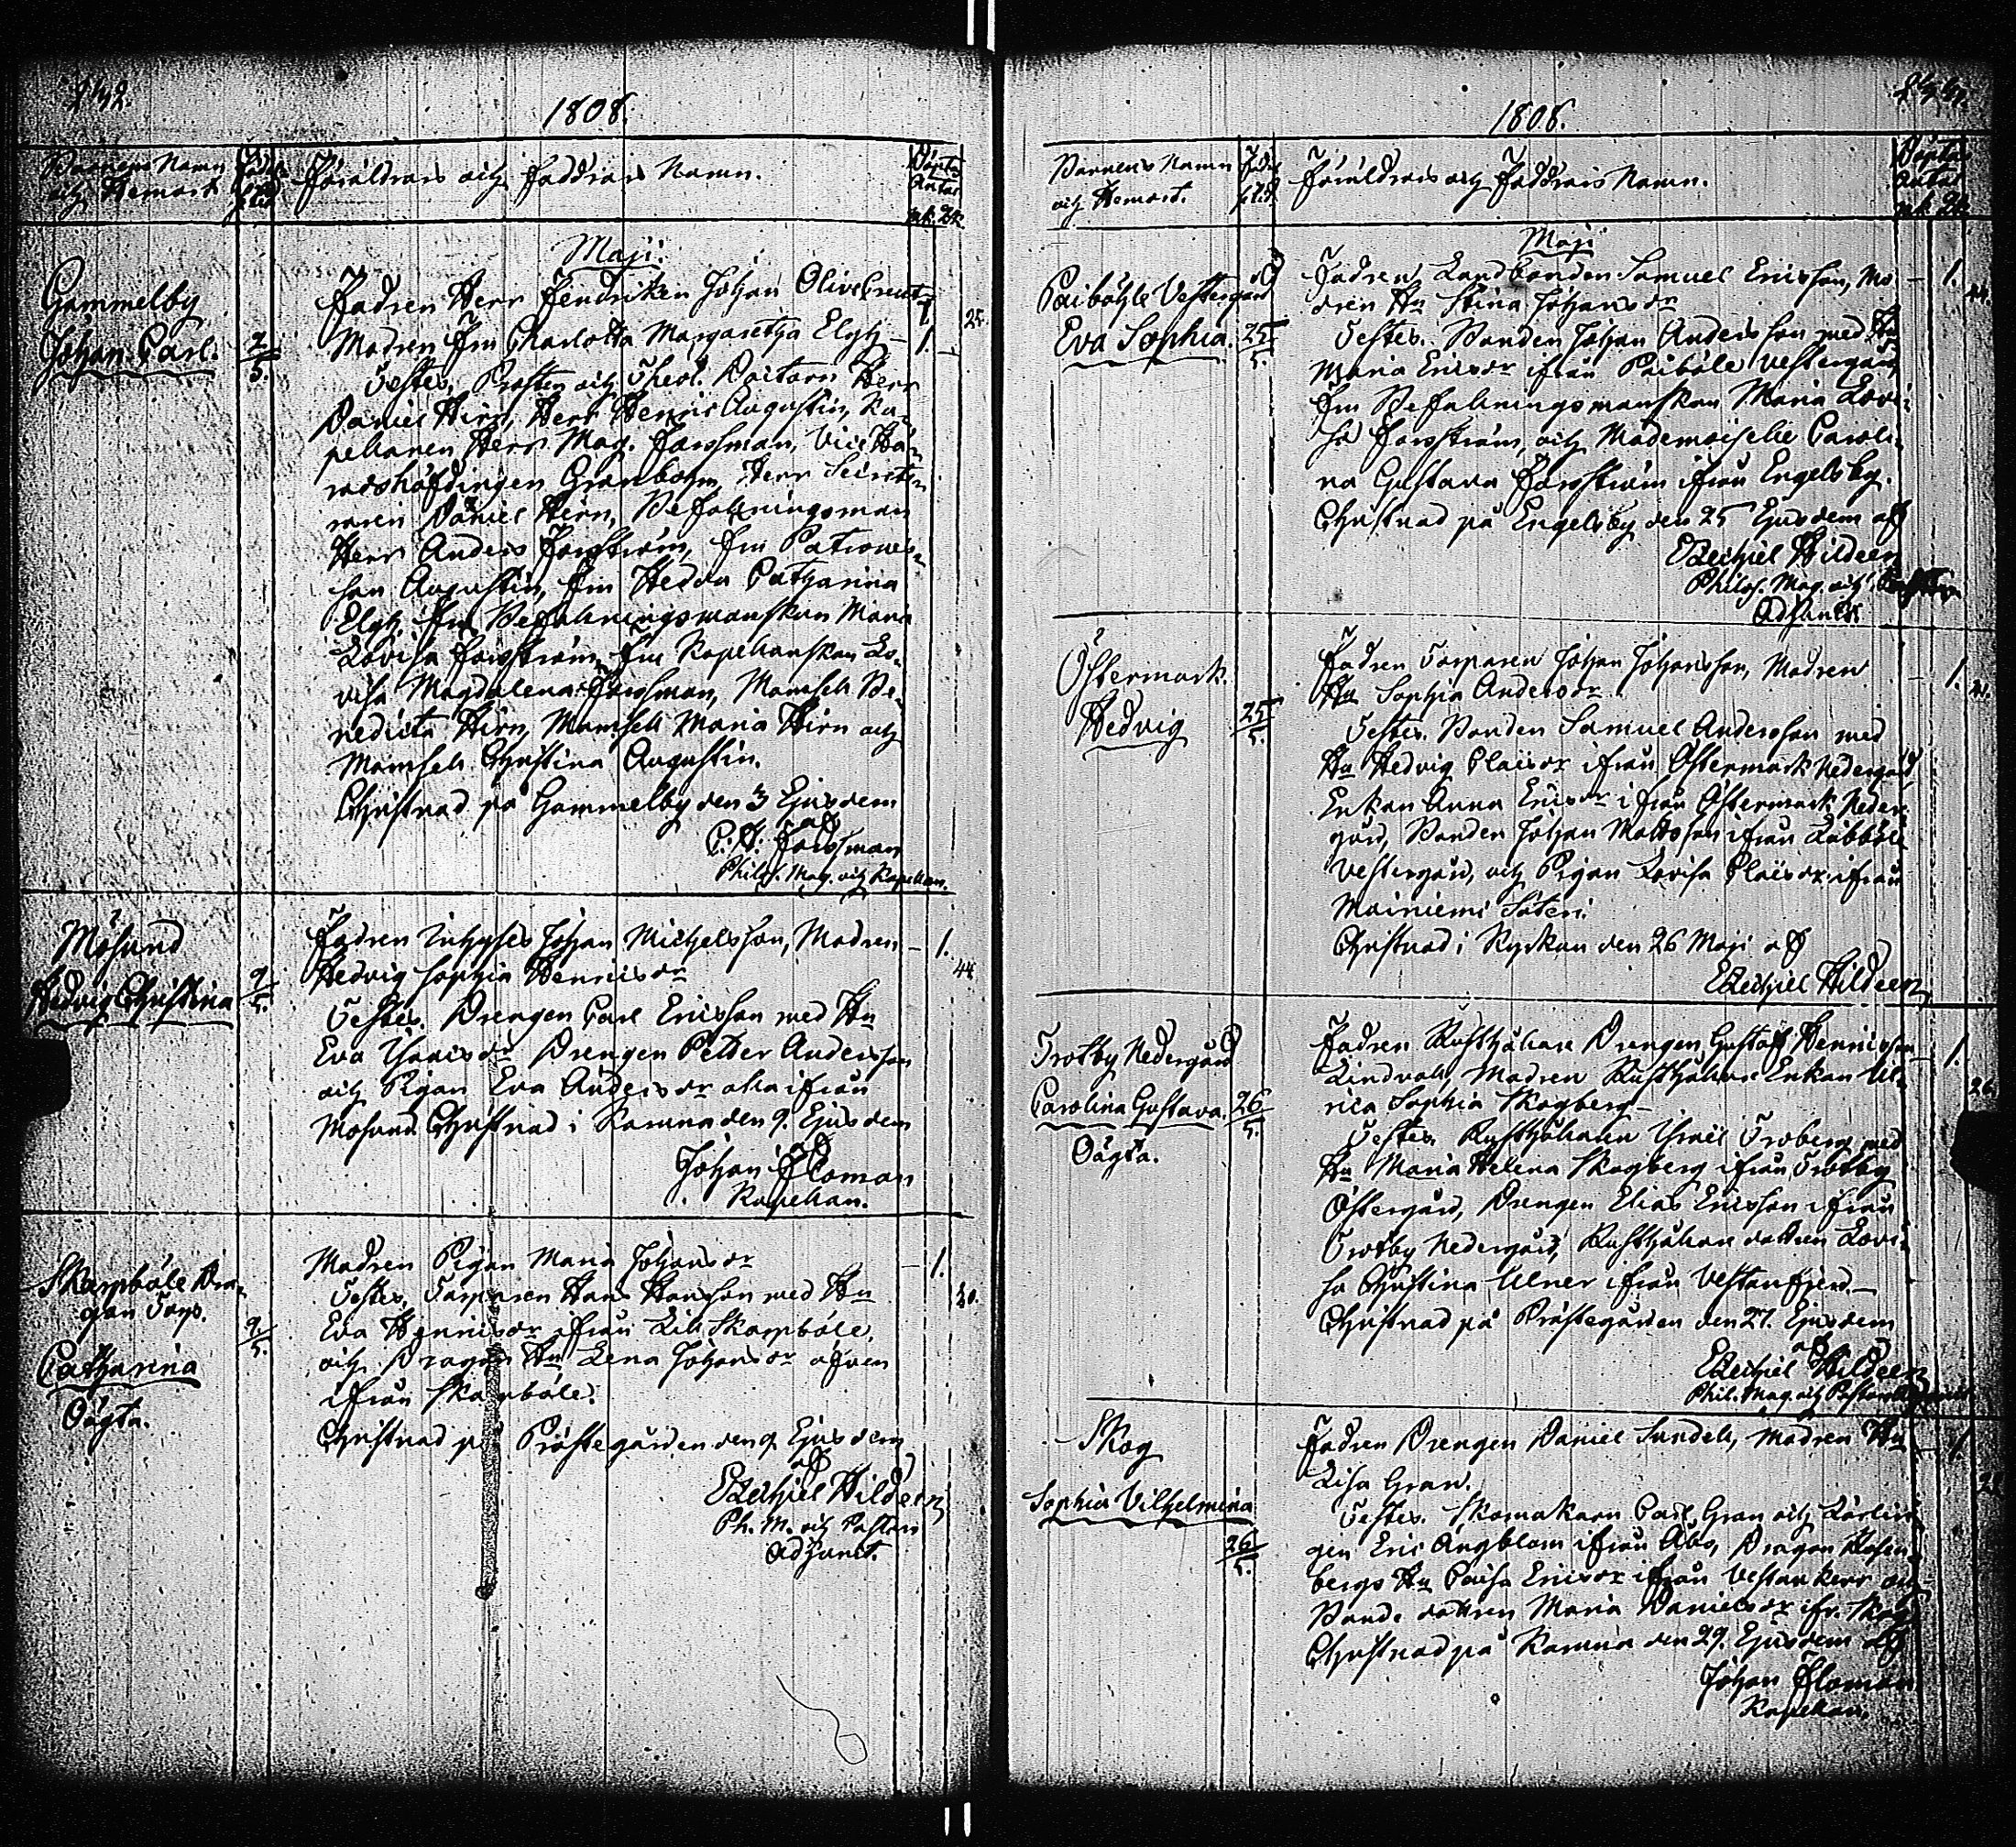 1808.
Barnens Namn
och Hemort
Föräldrars och Faddrars Namn.
Maji.
Gammelby
Johan Carl.
2/5.
Fadren Herr Fendriken Johan OliveCreutz
Modren Fru Charlotta Margaretha Elgh
Testes. Prosten och Theol. Doctorn Herr
Daniel Hirn, Herr Henric Augustin, Ca-
pellanen Herr Mag. Forssman, Vice Hä-
radshöfdingen Granbom, Herr Secrete-
raren Daniel Hirn, Befallningsman
Herr Anders Forsström, Fru Patrones-
san Augustin, Fru Hedda Catharina
Elgh, Fru Befallningsmanskan Maria
Lovisa Forsström, Fru Kapellanskan Lo-
visa Magdalena Forssman, Mamsell Be-
nedicta Hirn, Mamsell Maria Hirn och
Mamsell Christina Augustin.
Christnad på Gammelby den 3 Ejusdem
af
Forssman
Philos. Mag. och Kapellan.
Mösund
Hedvig Christina
9/5.
Fadren Inhyses Johan Michelsson, Modren
Hedvig Sophia Henricsdr
1.
44
Testes. Drengen Carl Ericsson med Hu
Eva Isaacsdr Drengen Petter Andersson
och Pigan Eva Andersdr alla ifrån
Mösund Christnad i Kamna den 9. Ejusdem
af
Johan Floman
Kapellan.
Skarpböle Dra-
gon Torp.
Catharina
Oägta.
9/5.
Modren Pigan Maria Johansdr
1.
20.
Testes. Torparen Hans Hansson med Hu
Eva Henricsdr ifrån Lill Skarpböle,
och Dragon Hu Lena Johansdr äfven
ifrån Skarpböle.
Christnad på Prästegården den 9. Ejusdem
af
Ezechiel Hildeen
Ph. M. och Pastors
Adjunct.
1808.
Barnens Namn
och Hemort.
Föräldrars och Faddrars Namn.
Maji
Paiböhle Vestergård
Eva Sophia.
25/5.
Fadren Landbonden Samuel Ericsson, Mo-
dren Hu Stina Johansdr
1.
Testes. Bonden Johan Andersson med Hu
Maria Ericsdr ifrån Paiböle Vestergård,
Fru Befallningsmanskan Maria Lovi-
sa Forsström, och Mademoiselle Caroli-
na Gustava Forsström ifrån Engelsby.
Christnad på Engelsby den 25 Ejusdem af
Ezechiel Hildeen
Philos. Mag. och
Adjunct.
Östermark
Hedvig
25/5.
Fadren Torparen Johan Johansson, Modren
Hu Sophia Andersdr
1.
Testes. Bonden Samuel Andersson med
Hu Hedvig Claësdr ifrån Östermark Nedergård,
Enkan Anna Ericsdr ifrån Östermark Neder-
gård, Bonden Johan Mattsson ifrån Labböle
Vestergård, och Pigan Lovisa Claësdr ifrån
Mainiemi Säteri.
Christnad i Kyrkan den 26 Maji af
Ezechiel Hildeen
Trotby Nedergård
Carolina Gustava.
Oägta.
26/5.
Fadren Rusthållare Drengen Gustaf Henricsson
Lindvall, Modren Rusthållare Enkan Ul-
rica Sophia Skogberg
1.
26.
Testes. Rusthållaren Israel Troberg med
Hu Maria Helena Skogberg ifrån Trotby
Östergård, Drengen Elias Ericsson ifrån
Trotby Nedergård, Rusthållare dottren Lovi-
sa Christina Ulner ifrån Vestanfjerd.
Christnad på Prästegården den 27. Ejusdem
af
Ezechiel Hildeen
Phil. Mag. och Pastors Adjunct
Skog
Sophia Vilhelmina
26/5.
Fadren Drengen Daniel Sundell, Modren Hu
Lisa Gran.
1.
Testes. Skomakarn Carl Gran och Lärlin-
gen Eric Ängblom ifrån Åbo, Dragon Rosen-
bergs Hu Caisa Ericsdr ifrån Vestankerr och
Bonde dottren Maria Danielsdr ifr. Skog
Christnad på Kamna den 29. Ejusdem af
Johan Floman
Kapellan.